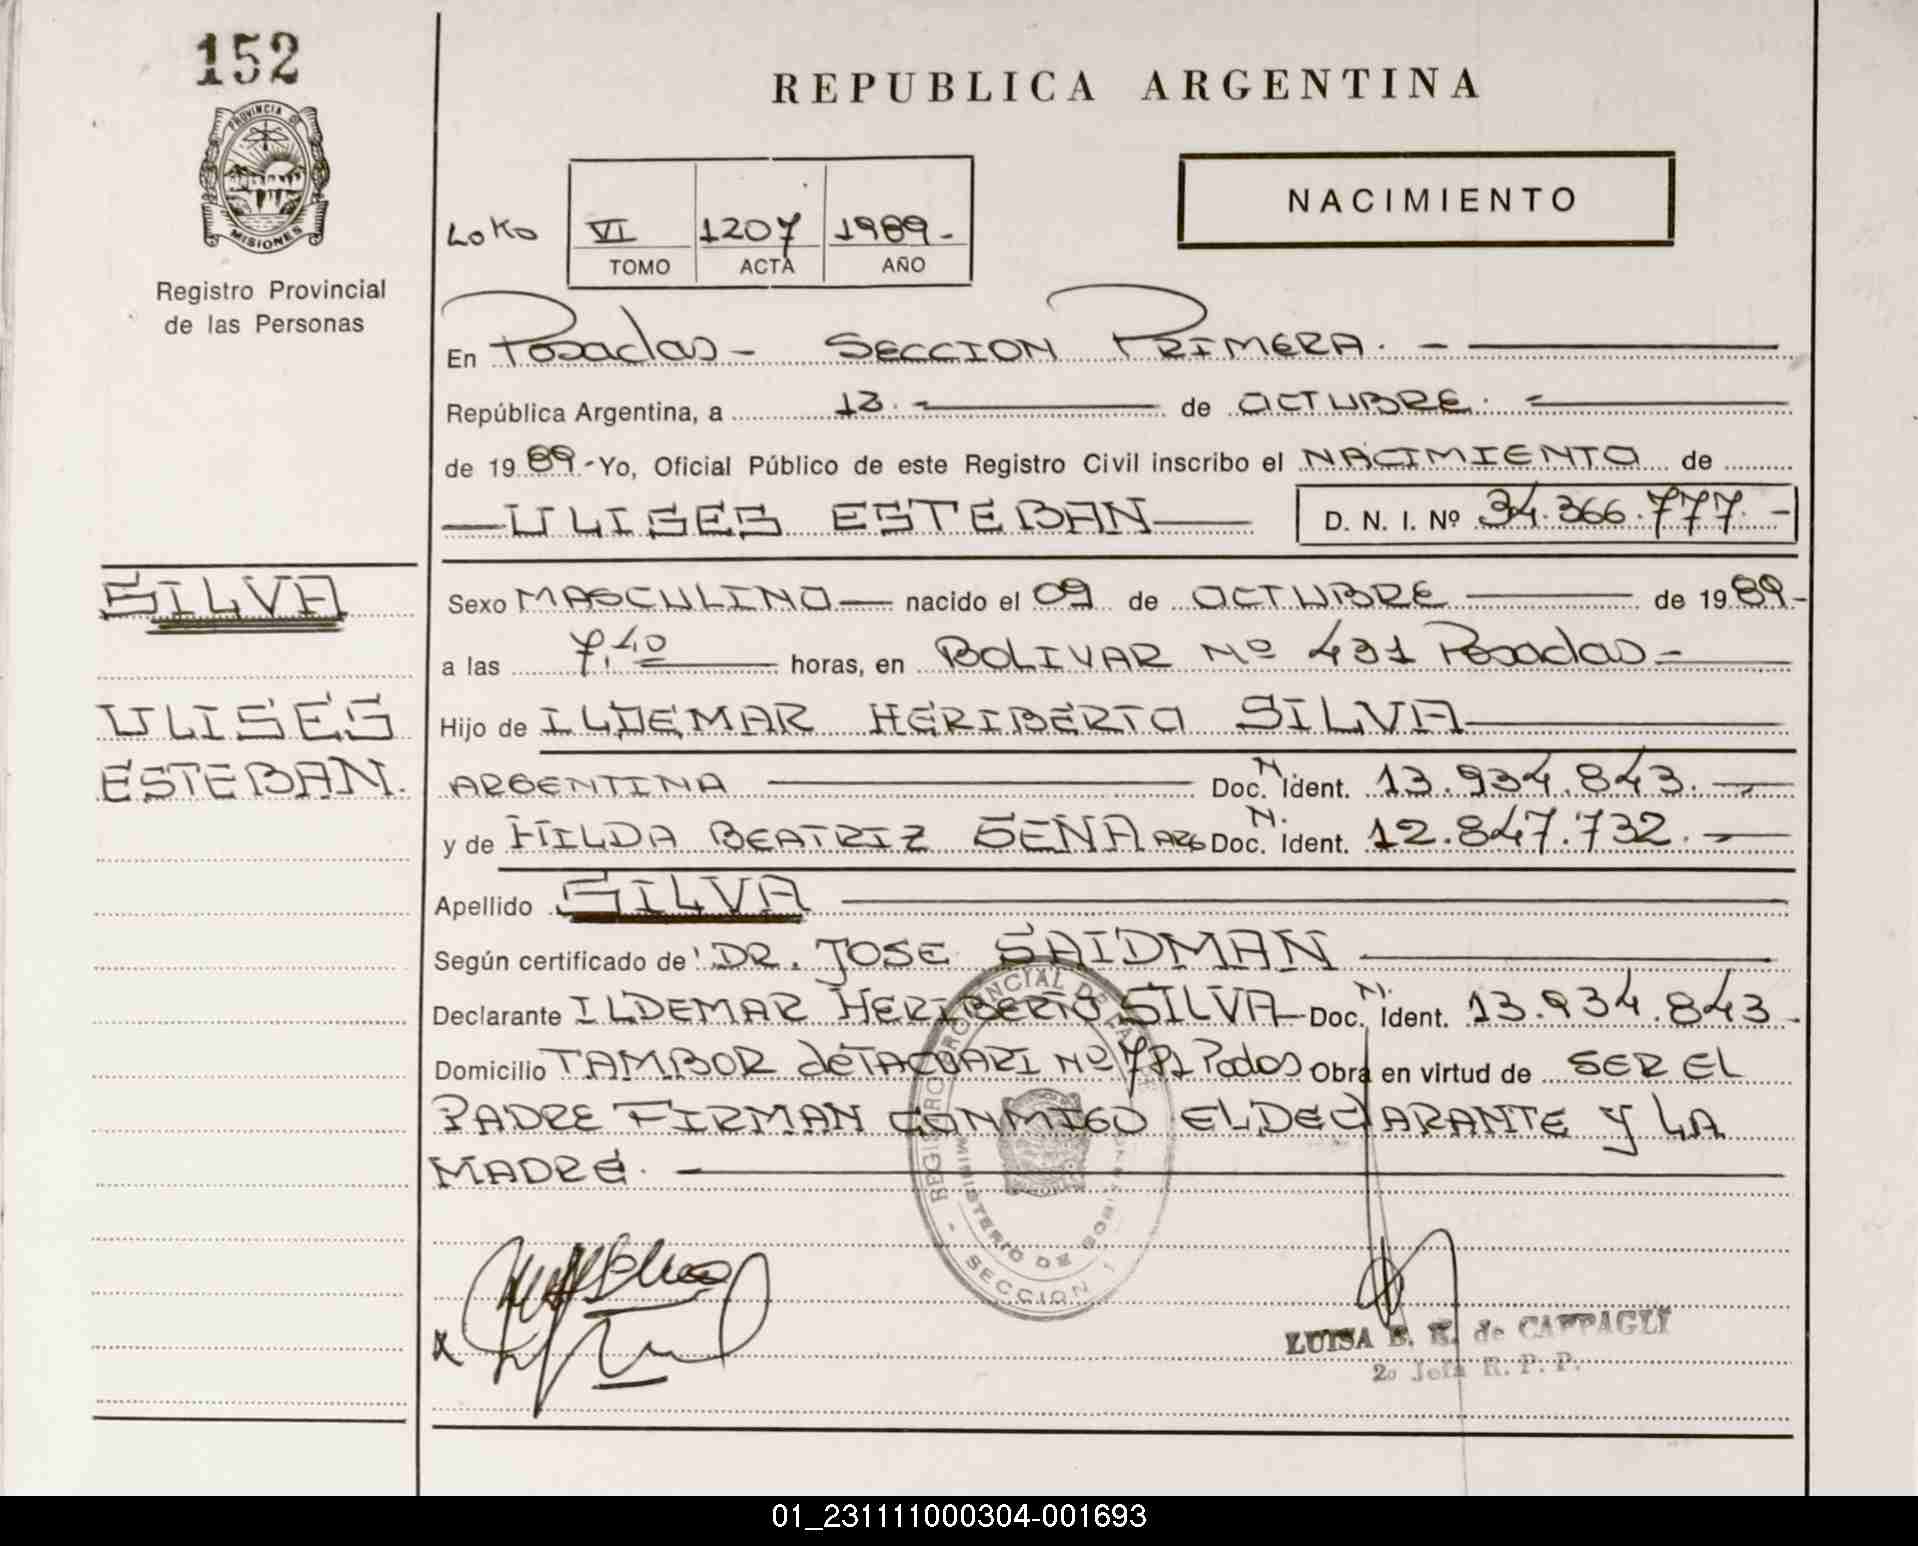 152
REPUBLICA ARGENTINA
PROVINCIA DE
MISIONES
Registro Provincial
de las Personas
NACIMIENTO
LoKo VI 1207 1989.-
TOMO ACTA AÑO
En Posadas - SECCION PRIMERA. -
República Argentina, a 13. de OCTUBRE.
de 1989.- Yo, Oficial Público de este Registro Civil inscribo el NACIMIENTO de
ULISES ESTEBAN D. N. I. Nº 34.366.777.-
SILVA
ULISES
ESTEBAN.
Sexo MASCULINO nacido el 09 de OCTUBRE de 1989.-
a las 7,40 horas, en BOLIVAR Nº 431 Posadas-
Hijo de ILDEMAR HERIBERTO SILVA
ARGENTINA Doc. N. Ident. 13.934.843.
y de HILDA BEATRIZ SENA ARG Doc. N. Ident. 12.847.732.
Apellido SILVA
Según certificado de DR. JOSE SAIDMAN
Declarante ILDEMAR HERIBERTO SILVA Doc. N. Ident. 13.934.843.
Domicilio TAMBOR deTACUARI Nº Podos Obra en virtud de SER EL
PADRE FIRMAN CONMIGO EL DEClARANTE Y LA
MADRE.
REGISTRO PROVINCIAL DE LAS
MINISTERIO DE GOBIERNO
- SECCION 1
LUISA E. K. de CAPPAGLI
2º Jefa R. P. P.
01_231111000304-001693